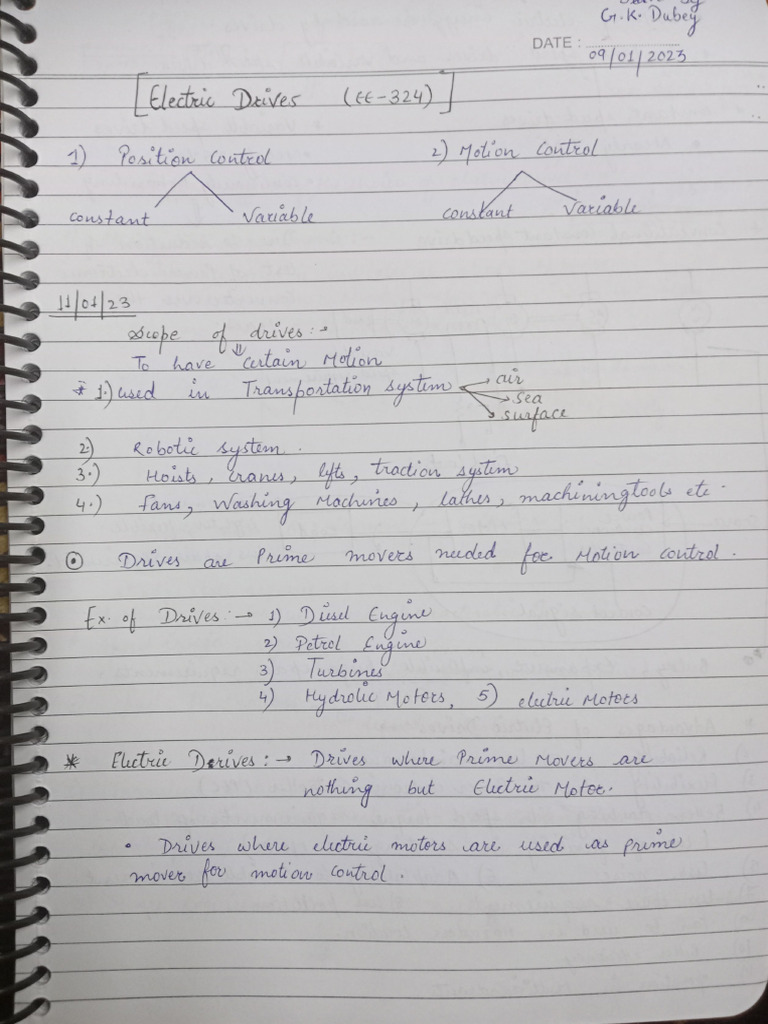 G.K. Dubey
DATE : 09/01/2023
[Electric Drives (EE-324)]
1) Position control 2) Motion control
constant Variable constant Variable
11/01/23
Scope of drives :-
To have certain Motion
* 1.) used in Transportation system → air
→ sea
→ surface
2.) Robotic system.
3.) Hoists, cranes, lifts, traction system
4.) Fans, Washing Machines, lathes, machiningtools etc.
⊙ Drives are Prime movers needed for Motion control.
Ex. of Drives :→ 1) Diesel Engine
2) Petrol Engine
3) Turbines
4) Hydrolic Motors, 5) electric Motors
* Electric Derives :→ Drives where Prime Movers are
nothing but Electric Motor.
• Drives where electric motors are used as prime
mover for motion control.